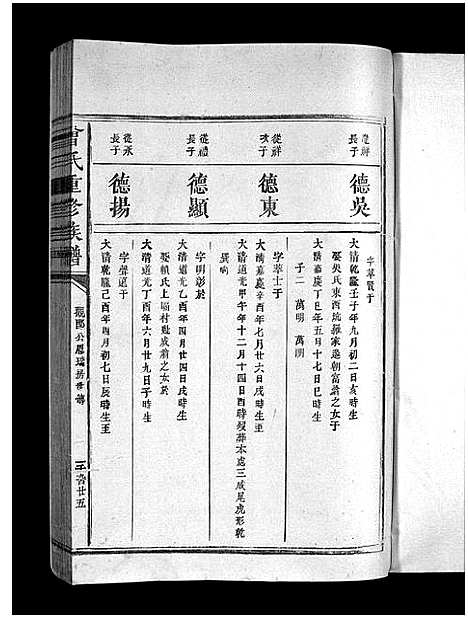 從鮮長子
德吳
字華賢于
大清乾隆壬子年九月初二日亥時生
娶吳氏東西院羅家邊朝富詣之女于
大清嘉慶丁巳年五月十七日巳時生
子二 萬明 萬朋
從鮮次子
德東
字華士于
大清嘉慶辛酉年七月廿六日戌時生至
大清道光甲午年十二月十四日酉時歿葬本處三咸尾虎形乾
巽向
從禮長子
德顯
字明彰於
大清道光乙酉年四月廿四日戌時生
娶賴氏上塅村毗成翁之女於
大清道光丁酉年六月廿九日子時生
從承長子
德揚
字聲遠于
大清乾隆己酉年四月初七日辰時生至
曾氏重修族譜
公鳳瑞房世傳
廿五